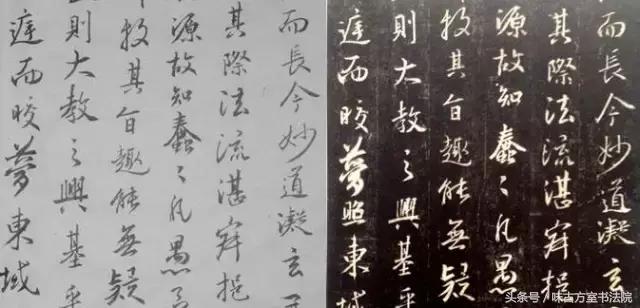 而長今妙道凝玄
其際法流湛寂挹
源故知蠢〻凡愚
投其旨趣能無疑
則大教之興基乎
庭而皎夢東域
而長今妙道凝玄
其際法流湛寂挹
源故知蠢〻凡愚
投其旨趣能無疑
則大教之興基
庭而皎夢照東域
头条号 / 味古方室书法院